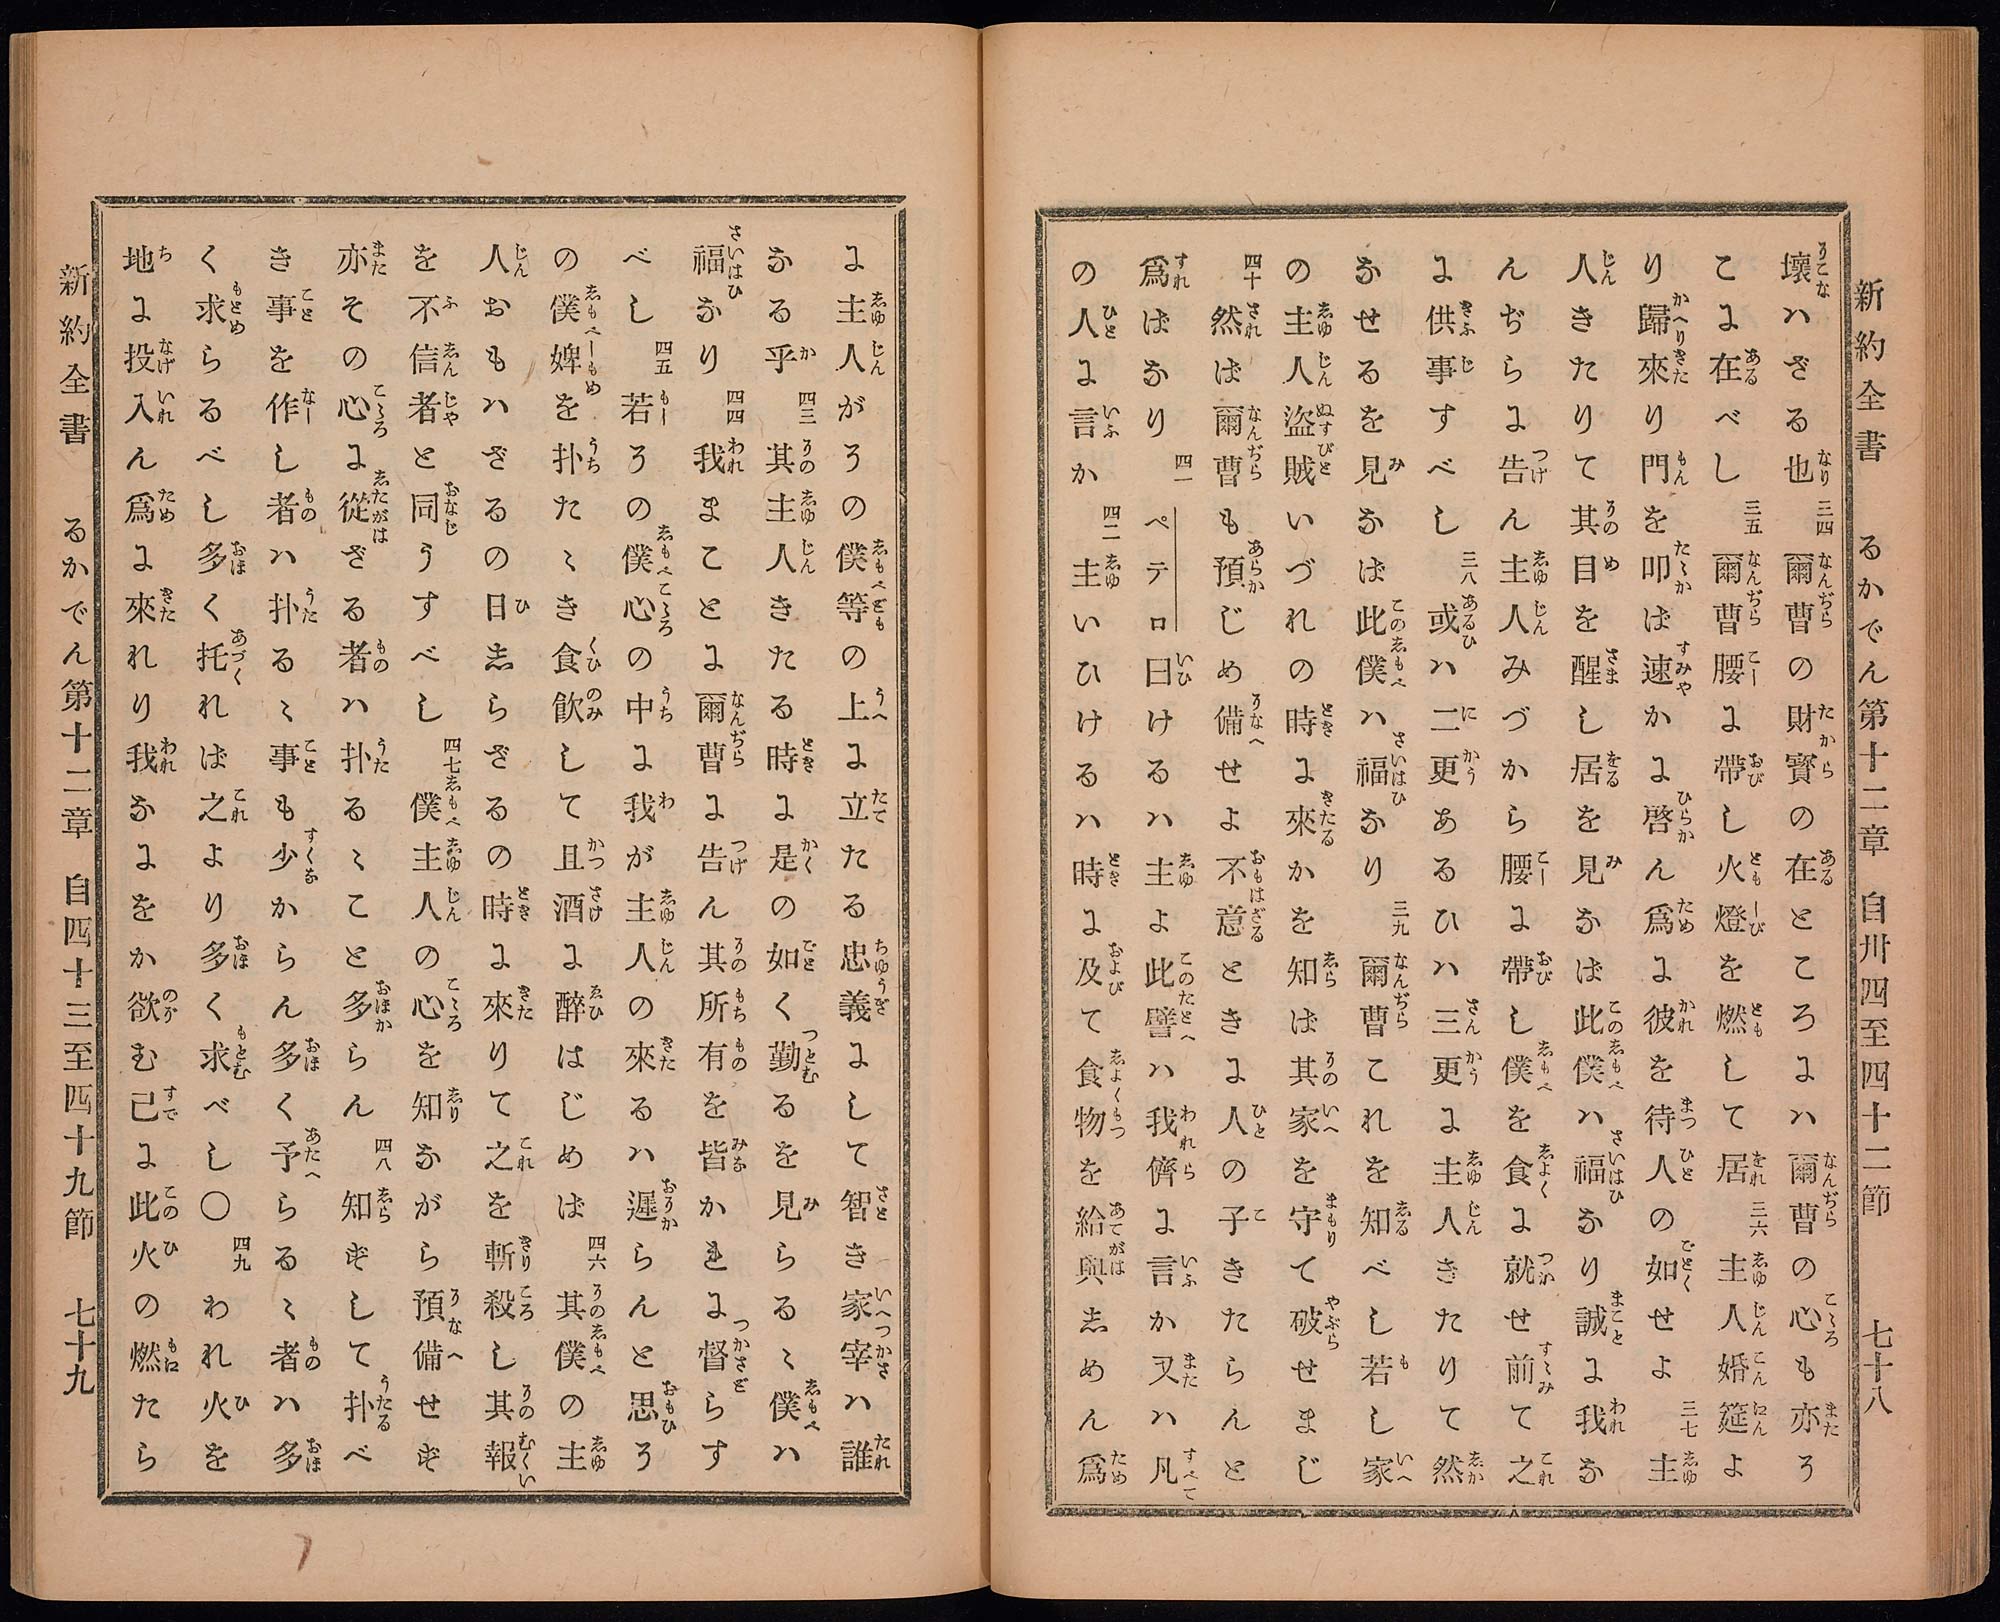 新約全書　るかでん第十二章　自卅四至四十二節　七十八
壞ハざる也三四爾曹の財寳の在ところにハ爾曹の心も亦そ
こに在べし三五爾曹腰に帶し火燈を燃して居三六主人婚筵よ
り歸來り門を叩ば速かに啓ん爲に彼を待人の如せよ三七主
人きたりて其目を醒し居を見なば此僕ハ福なり誠に我な
んぢらに告ん主人みづから腰に帶し僕を食に就せ前て之
に供事すべし三八或ハ二更あるひハ三更に主人きたりて然
なせるを見なば此僕ハ福なり三九爾曹これを知べし若し家
の主人盜賊いづれの時に來かを知ば其家を守て破せまじ
四十然ば爾曹も預じめ備せよ不意ときに人の子きたらんと
爲ばなり四一ペテロ曰けるハ主よ此譬ハ我儕に言か又ハ凡
の人に言か四二主いひけるハ時に及て食物を給與しめん爲
に主人がその僕等の上に立たる忠義にして智き家宰ハ誰
なる乎四三其主人きたる時に是の如く勤るを見らるゝ僕ハ
福なり四四我まことに爾曹に告ん其所有を皆かれに督らす
べし四五若その僕心の中に我が主人の來るハ遲らんと思そ
の僕婢を扑たゝき食飮して且酒に醉はじめば四六其僕の主
人おもハざるの日しらざるの時に來りて之を斬殺し其報
を不信者と同うすべし四七僕主人の心を知ながら預備せず
亦その心に從ざる者ハ扑るゝこと多らん四八知ずして扑べ
き事を作し者ハ扑るゝ事も少からん多く予らるゝ者ハ多
く求らるべし多く托れば之より多く求べし〇四九われ火を
地に投入ん爲に來れり我なにをか欲む已に此火の燃たら
新約全書　るかでん第十二章　自四十三至四十九節　七十九